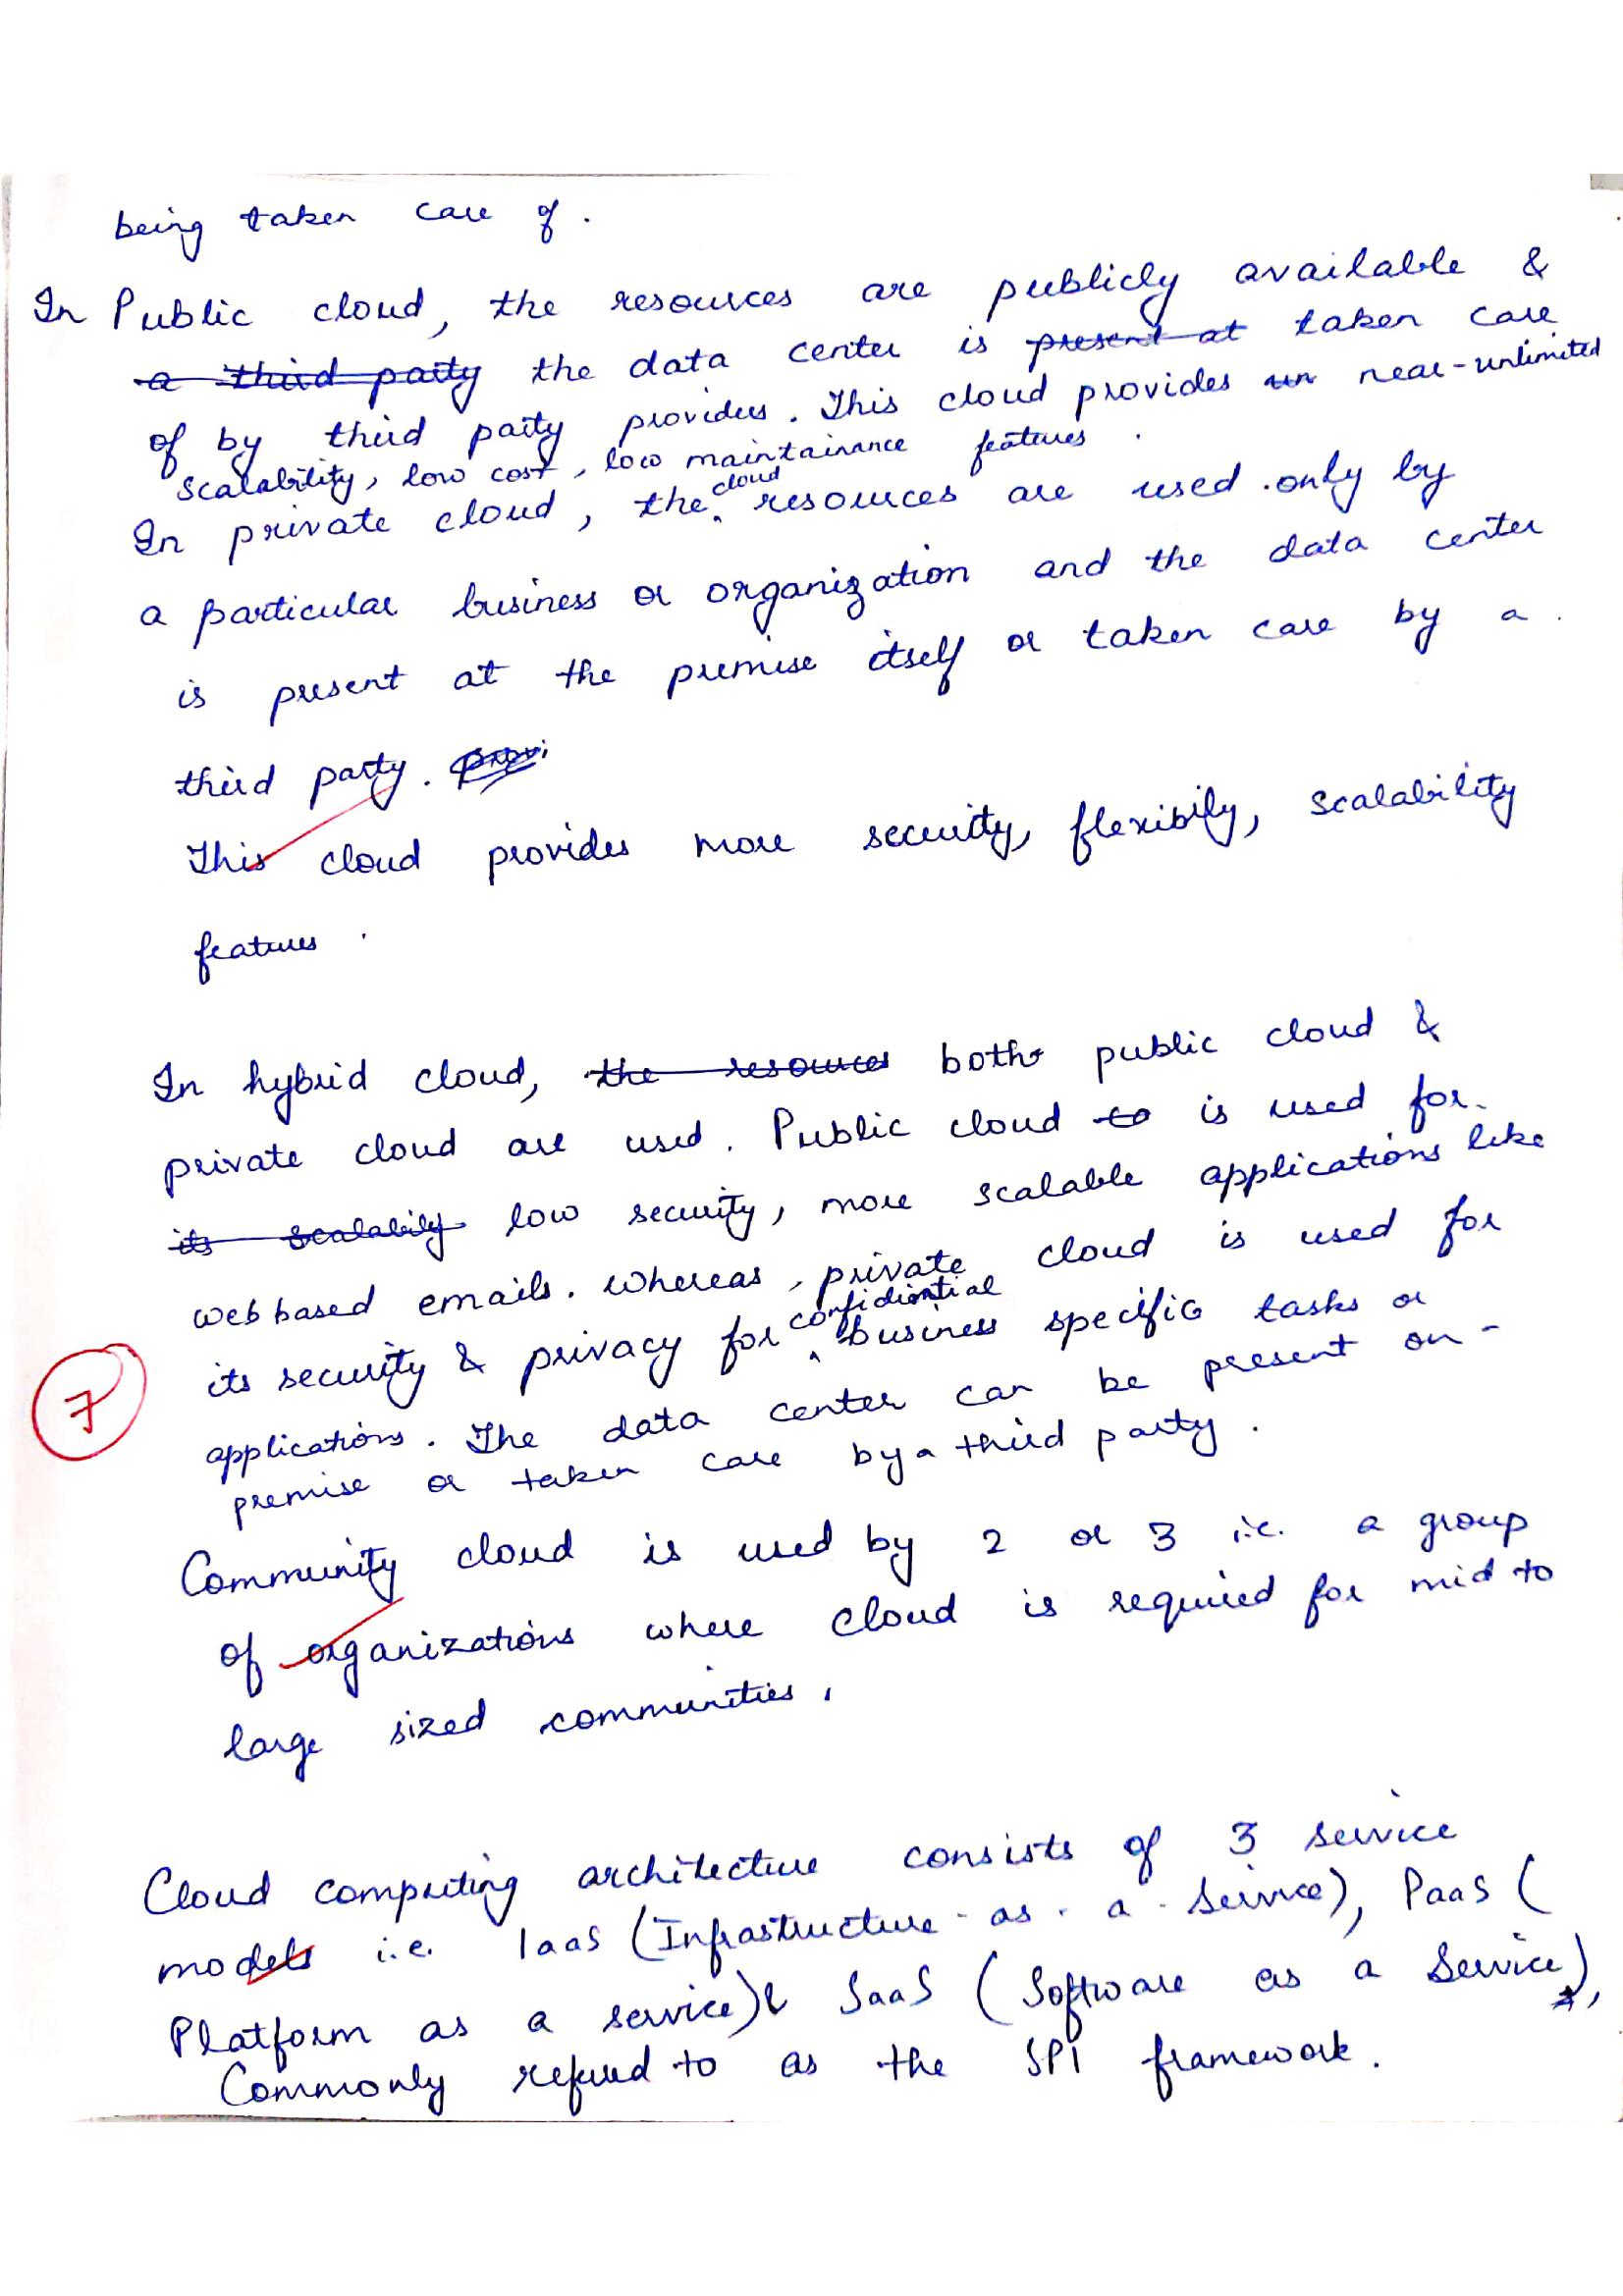 being taken care of.
In Public cloud, the resources are publicly available &
a third party the data center is present at taken care
of by third party providers. This cloud provides un near-unlimited
scalability, low cost, low maintainance features.
In private cloud, the cloud resources are used only by
a particular business or organization and the data center
is present at the premise itself or taken care by a
third party. provi
This cloud provides more security, flexibily, scalability
features.
In hybrid cloud, the resources both public cloud &
private cloud are used. Public cloud to is used for
its scalabily low security, more scalable applications like
web based emails. whereas, private cloud is used for
its security & privacy for confidiential business specific tasks or
applications. The data center can be present on-
premise or taken care by a third party.
7
Community cloud is used by 2 or 3 i.e. a group
of organizations where cloud is required for mid to
large sized communities.
Cloud computing architecture consists of 3 service
models i.e. IaaS (Infrastructure-as-a-Service), PaaS (
Platform as a service) & SaaS (Software as a Service),
Commonly refered to as the SPI framework.